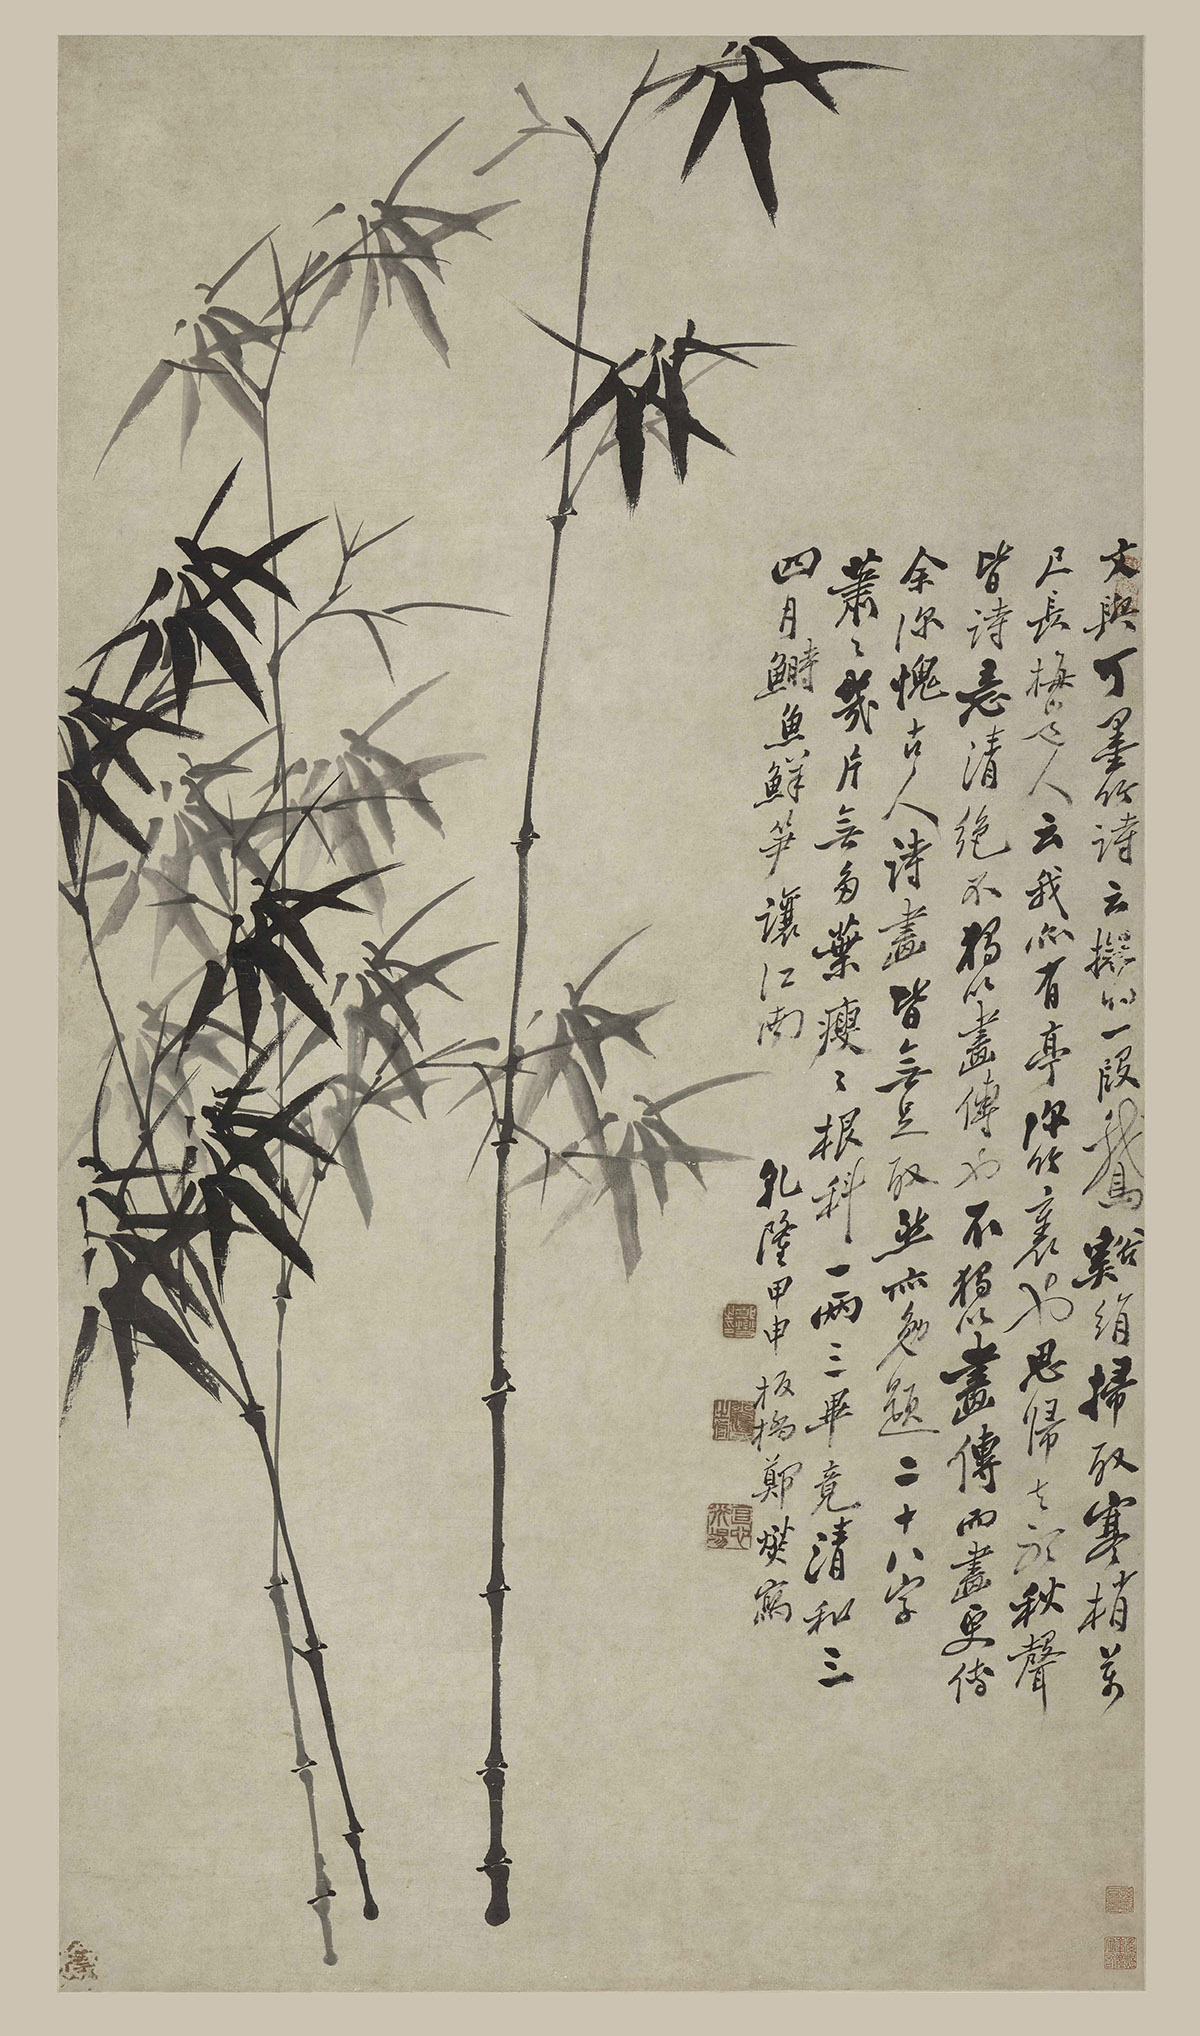 文與可墨竹詩云擬將一段鵞谿絹掃取寒梢萬
尺長梅道人云我亦有亭深竹裏也思歸去聽秋聲
皆詩意清絕不獨以畫傳也不獨以畫傳而畫更傳
余深愧古人詩畫皆無足取然亦勉題二十八字
蕭〻幾片無多葉瘦〻根科一兩三畢竟清和三
四月鰣魚鮮筍讓江南
乾隆甲申板橋鄭燮寫